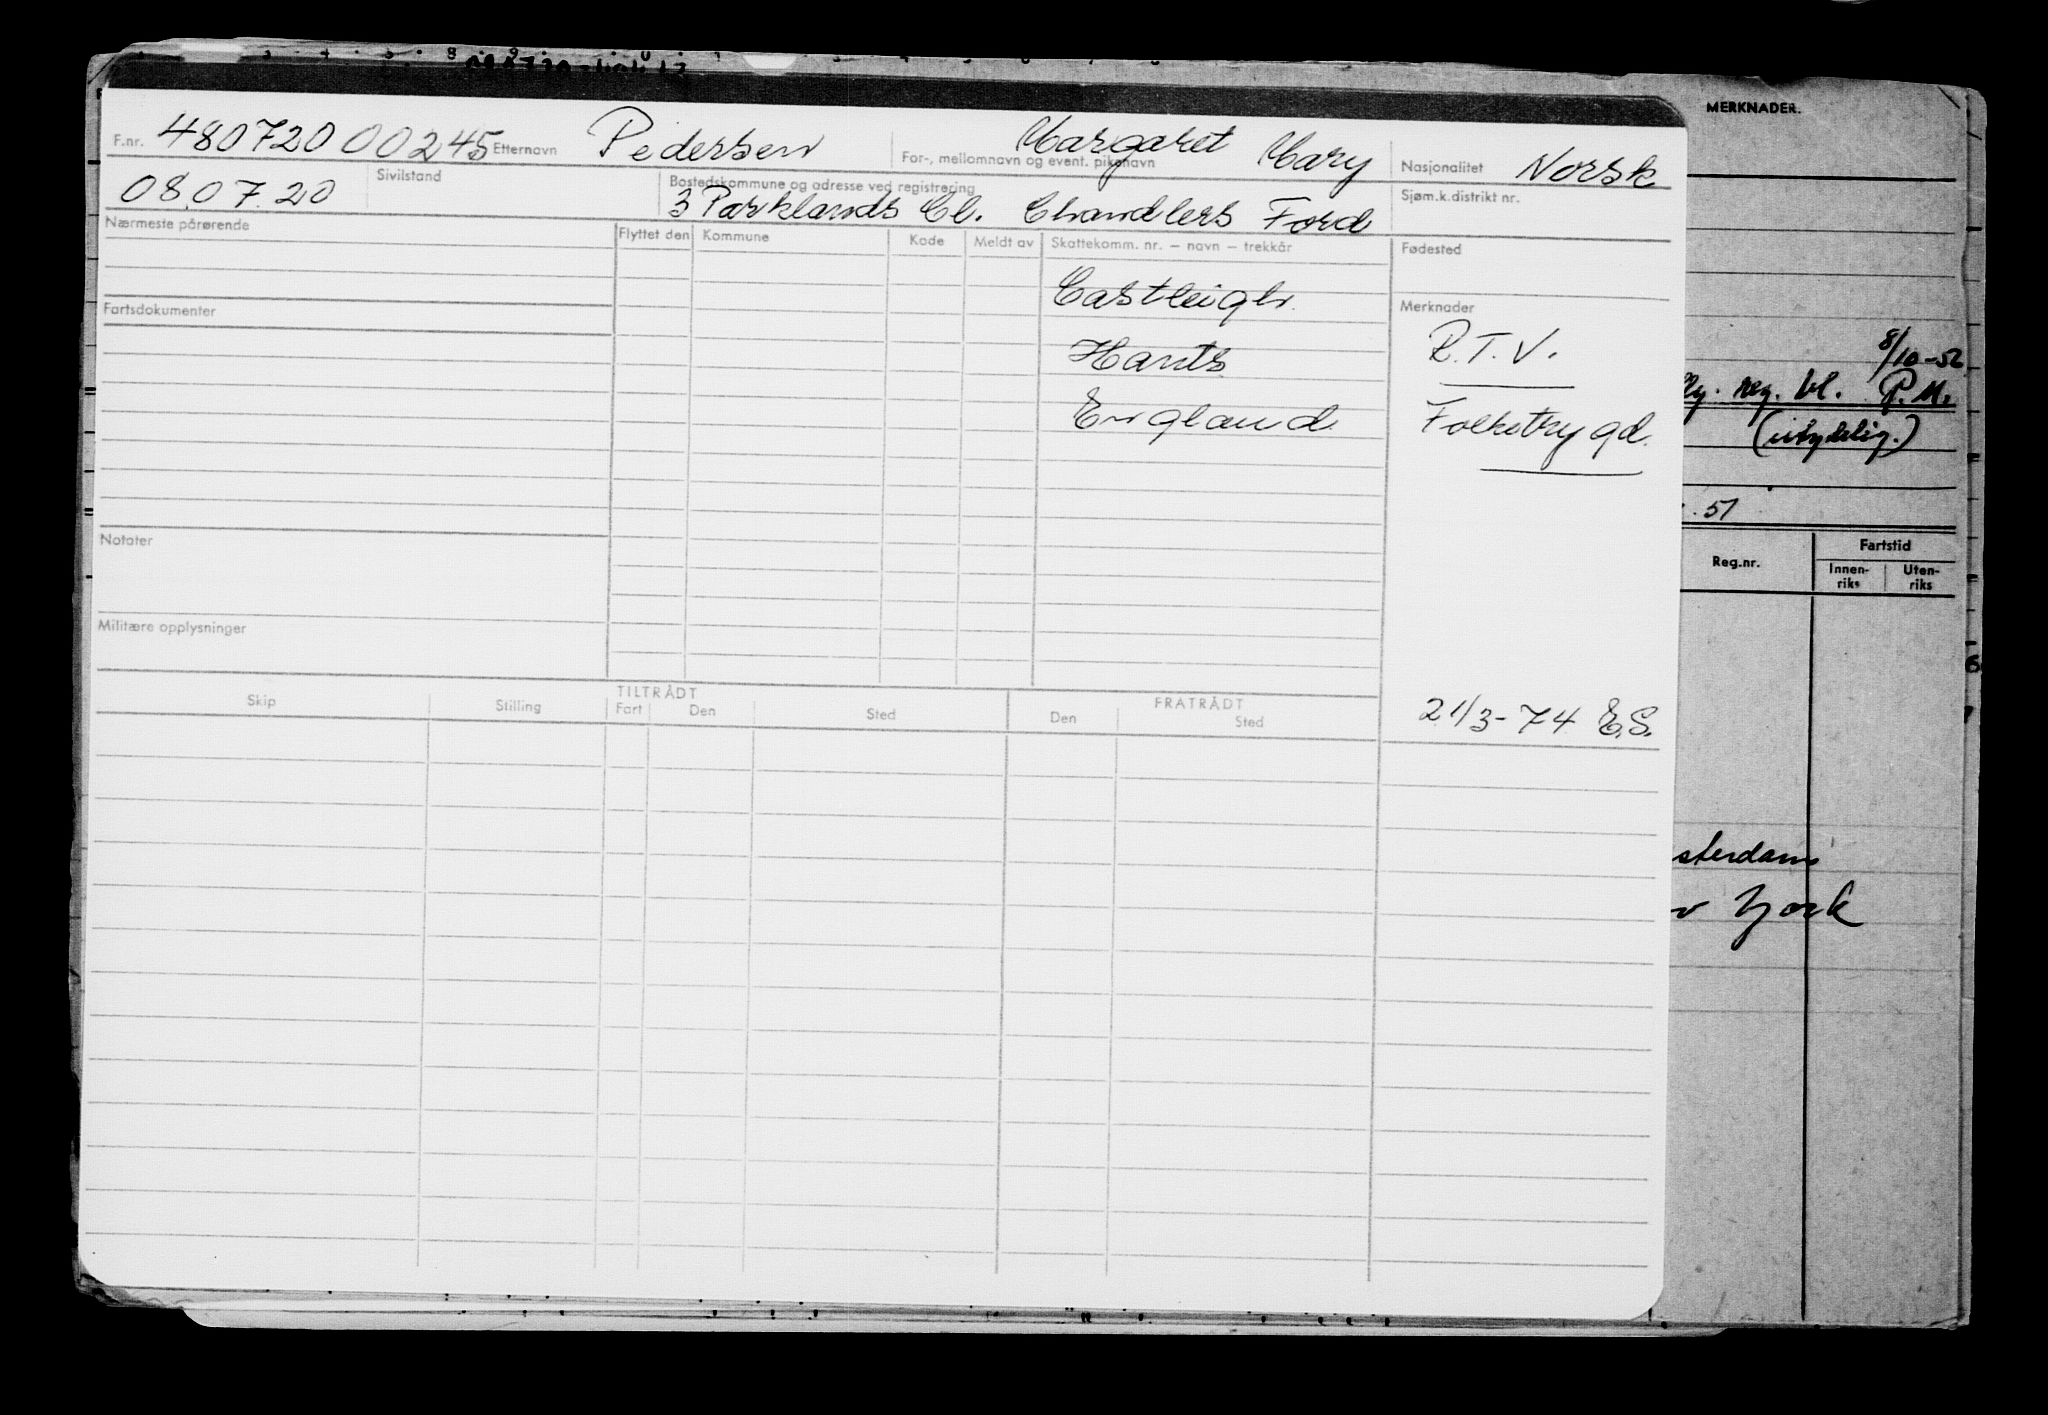 F.nr. 480720 00245 Etternavn Pedersen For-, mellomnavn og event. pikenavn Margaret Mary Nasjonalitet Norsk
08.07.20 Sivilstand Bostedskommune og adresse ved registrering 3 Parklands Cl. Chandlers Ford Sjøm.k.distrikt nr.
Nærmeste pårørende Flyttet den Kommune Kode Meldt av Skattekomm. nr. — navn — trekkår Fødested
Eastleigh.
Fartsdokumenter Merknader
Hants R.T.V.
England. Folketrygd.
Notater
Militære opplysninger
TILTRÅDT FRATRÅDT
Skip Stilling Fart Den Sted Den Sted
21/3-74 E.S.
MERKNADER.
8/10-52
reg. bl. P.M.
(utydelig.)
. 51
Reg.nr. Fartstid
Innen-riks Uten-riks
sterdam
York